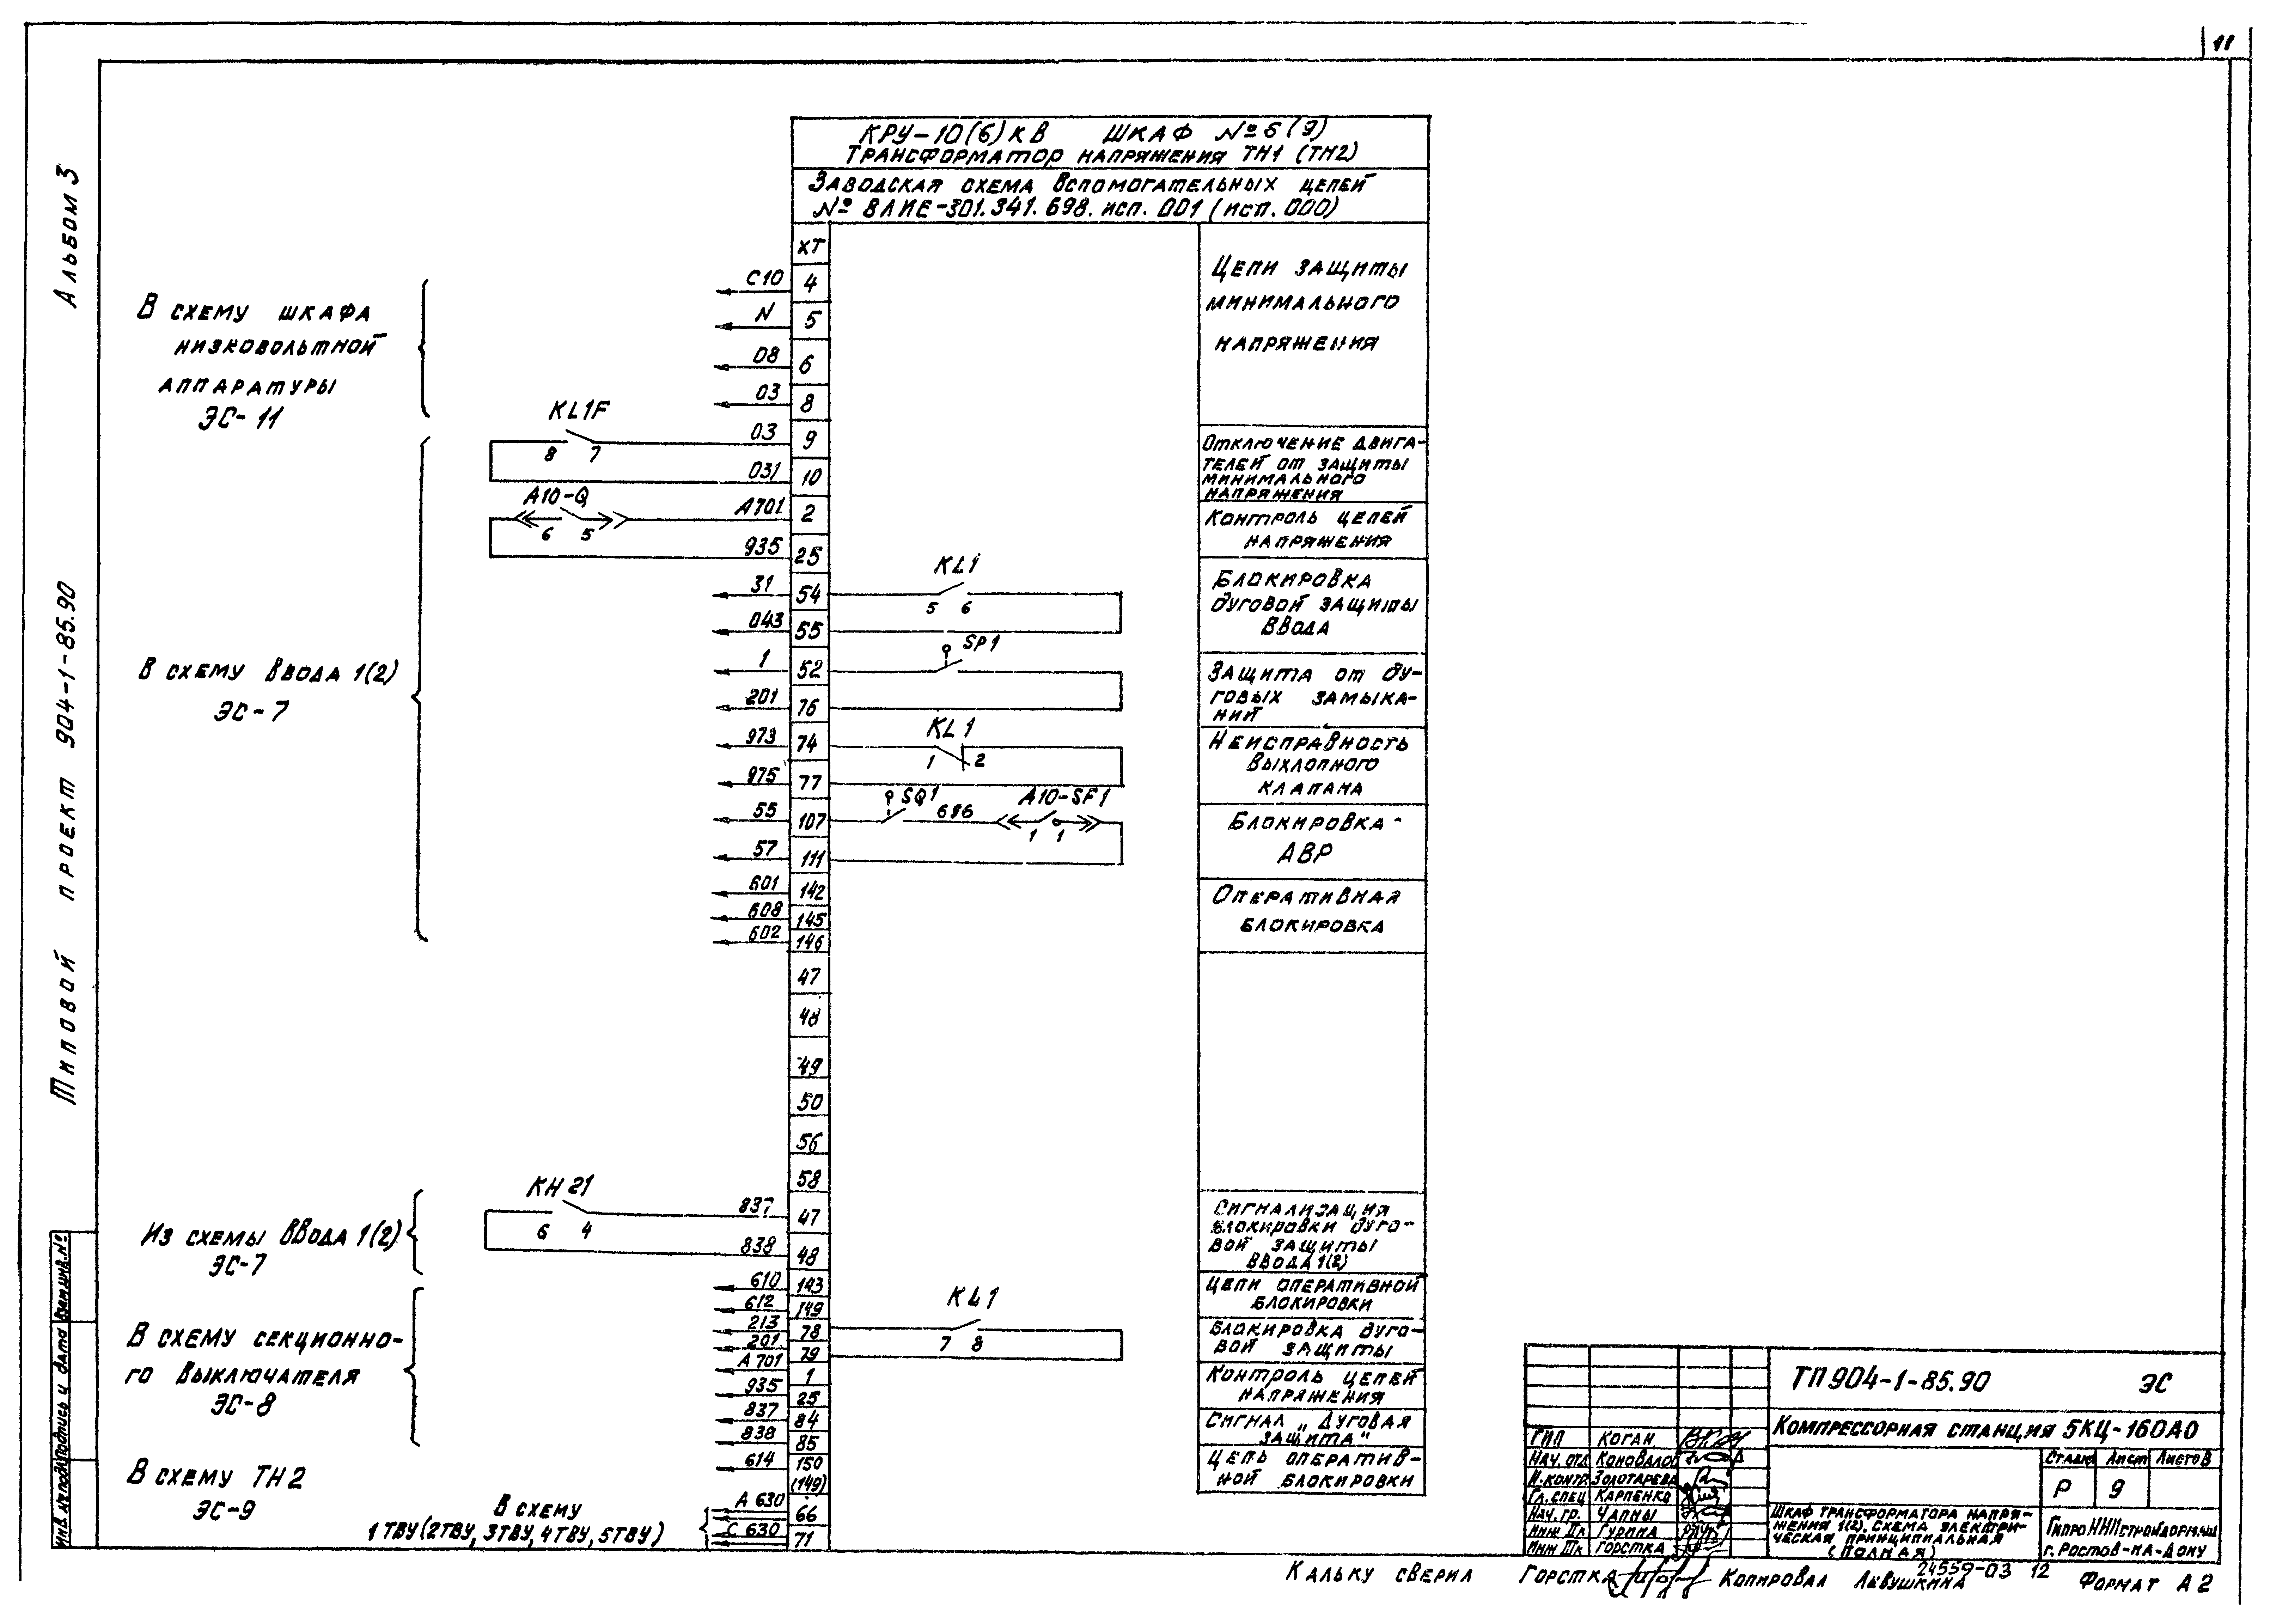 11
Альбом 3
Типовой проект 904-1-85.90
КРУ-10(6)кВ шкаф №6(9)
Трансформатор напряжения ТН1 (ТН2)
Заводская схема вспомогательных цепей
№ 8ЛИЕ-301.341.698. исп. 001 (исп. 000)
ХТ
В схему шкафа
низковольтной
аппаратуры
ЭС-11
С10 4
N 5
08 6
03 8
Цепи защиты
минимального
напряжения
KL1F
8 7
03 9
031 10
Отключение двига-
телей от защиты
минимального
напряжения
A10-Q
6 5
A701 2
935 25
Контроль цепей
напряжения
В схему ввода 1(2)
ЭС-7
31 54
043 55
KL1
5 6
Блокировка
дуговой защиты
ввода
1 52
201 76
SP1
Защита от ду-
говых замыка-
ний
973 74
975 77
KL1
1 2
Неисправность
выхлопного
клапана
55 107
57 111
SQ1 696 A10-SF1
1 1
Блокировка
АВР
601 142
608 145
602 146
Оперативная
блокировка
47
48
49
50
56
58
Из схемы ввода 1(2)
ЭС-7
KH21
6 4
837 47
838 48
Сигнализация
блокировки дуго-
вой защиты
ввода 1(2)
В схему секционно-
го выключателя
ЭС-8
610 143
612 149
Цепи оперативной
блокировки
213 78
201 79
KL1
7 8
Блокировка дуго-
вой защиты
А701 1
935 25
Контроль цепей
напряжения
837 84
838 85
Сигнал „Дуговая
защита"
В схему ТН2
ЭС-9
614 150
(149)
Цепь оператив-
ной блокировки
В схему
1ТВУ(2ТВУ, 3ТВУ, 4ТВУ, 5ТВУ)
А 630 66
С 630 71
Инв. № подл. Подпись и дата Взам.инв.№
ТП 904-1-85.90 ЭС
Компрессорная станция 5КЦ-160А0
ГИП Коган
Нач. отд Коновалов
Н.контр. Золотарева
Гл. спец Карпенко
Нач. гр. Чапны
Инж IIк Гурина
Инж IIIк Горстка
Стадия Лист Листов
Р 9
Шкаф трансформатора напря-
жения 1(2). Схема электри-
ческая принципиальная
(полная)
ГипроНИИстройдормаш
г. Ростов-на-Дону
Кальку сверил Горстка Копировал Левушкина
24559-03 12
Формат А2